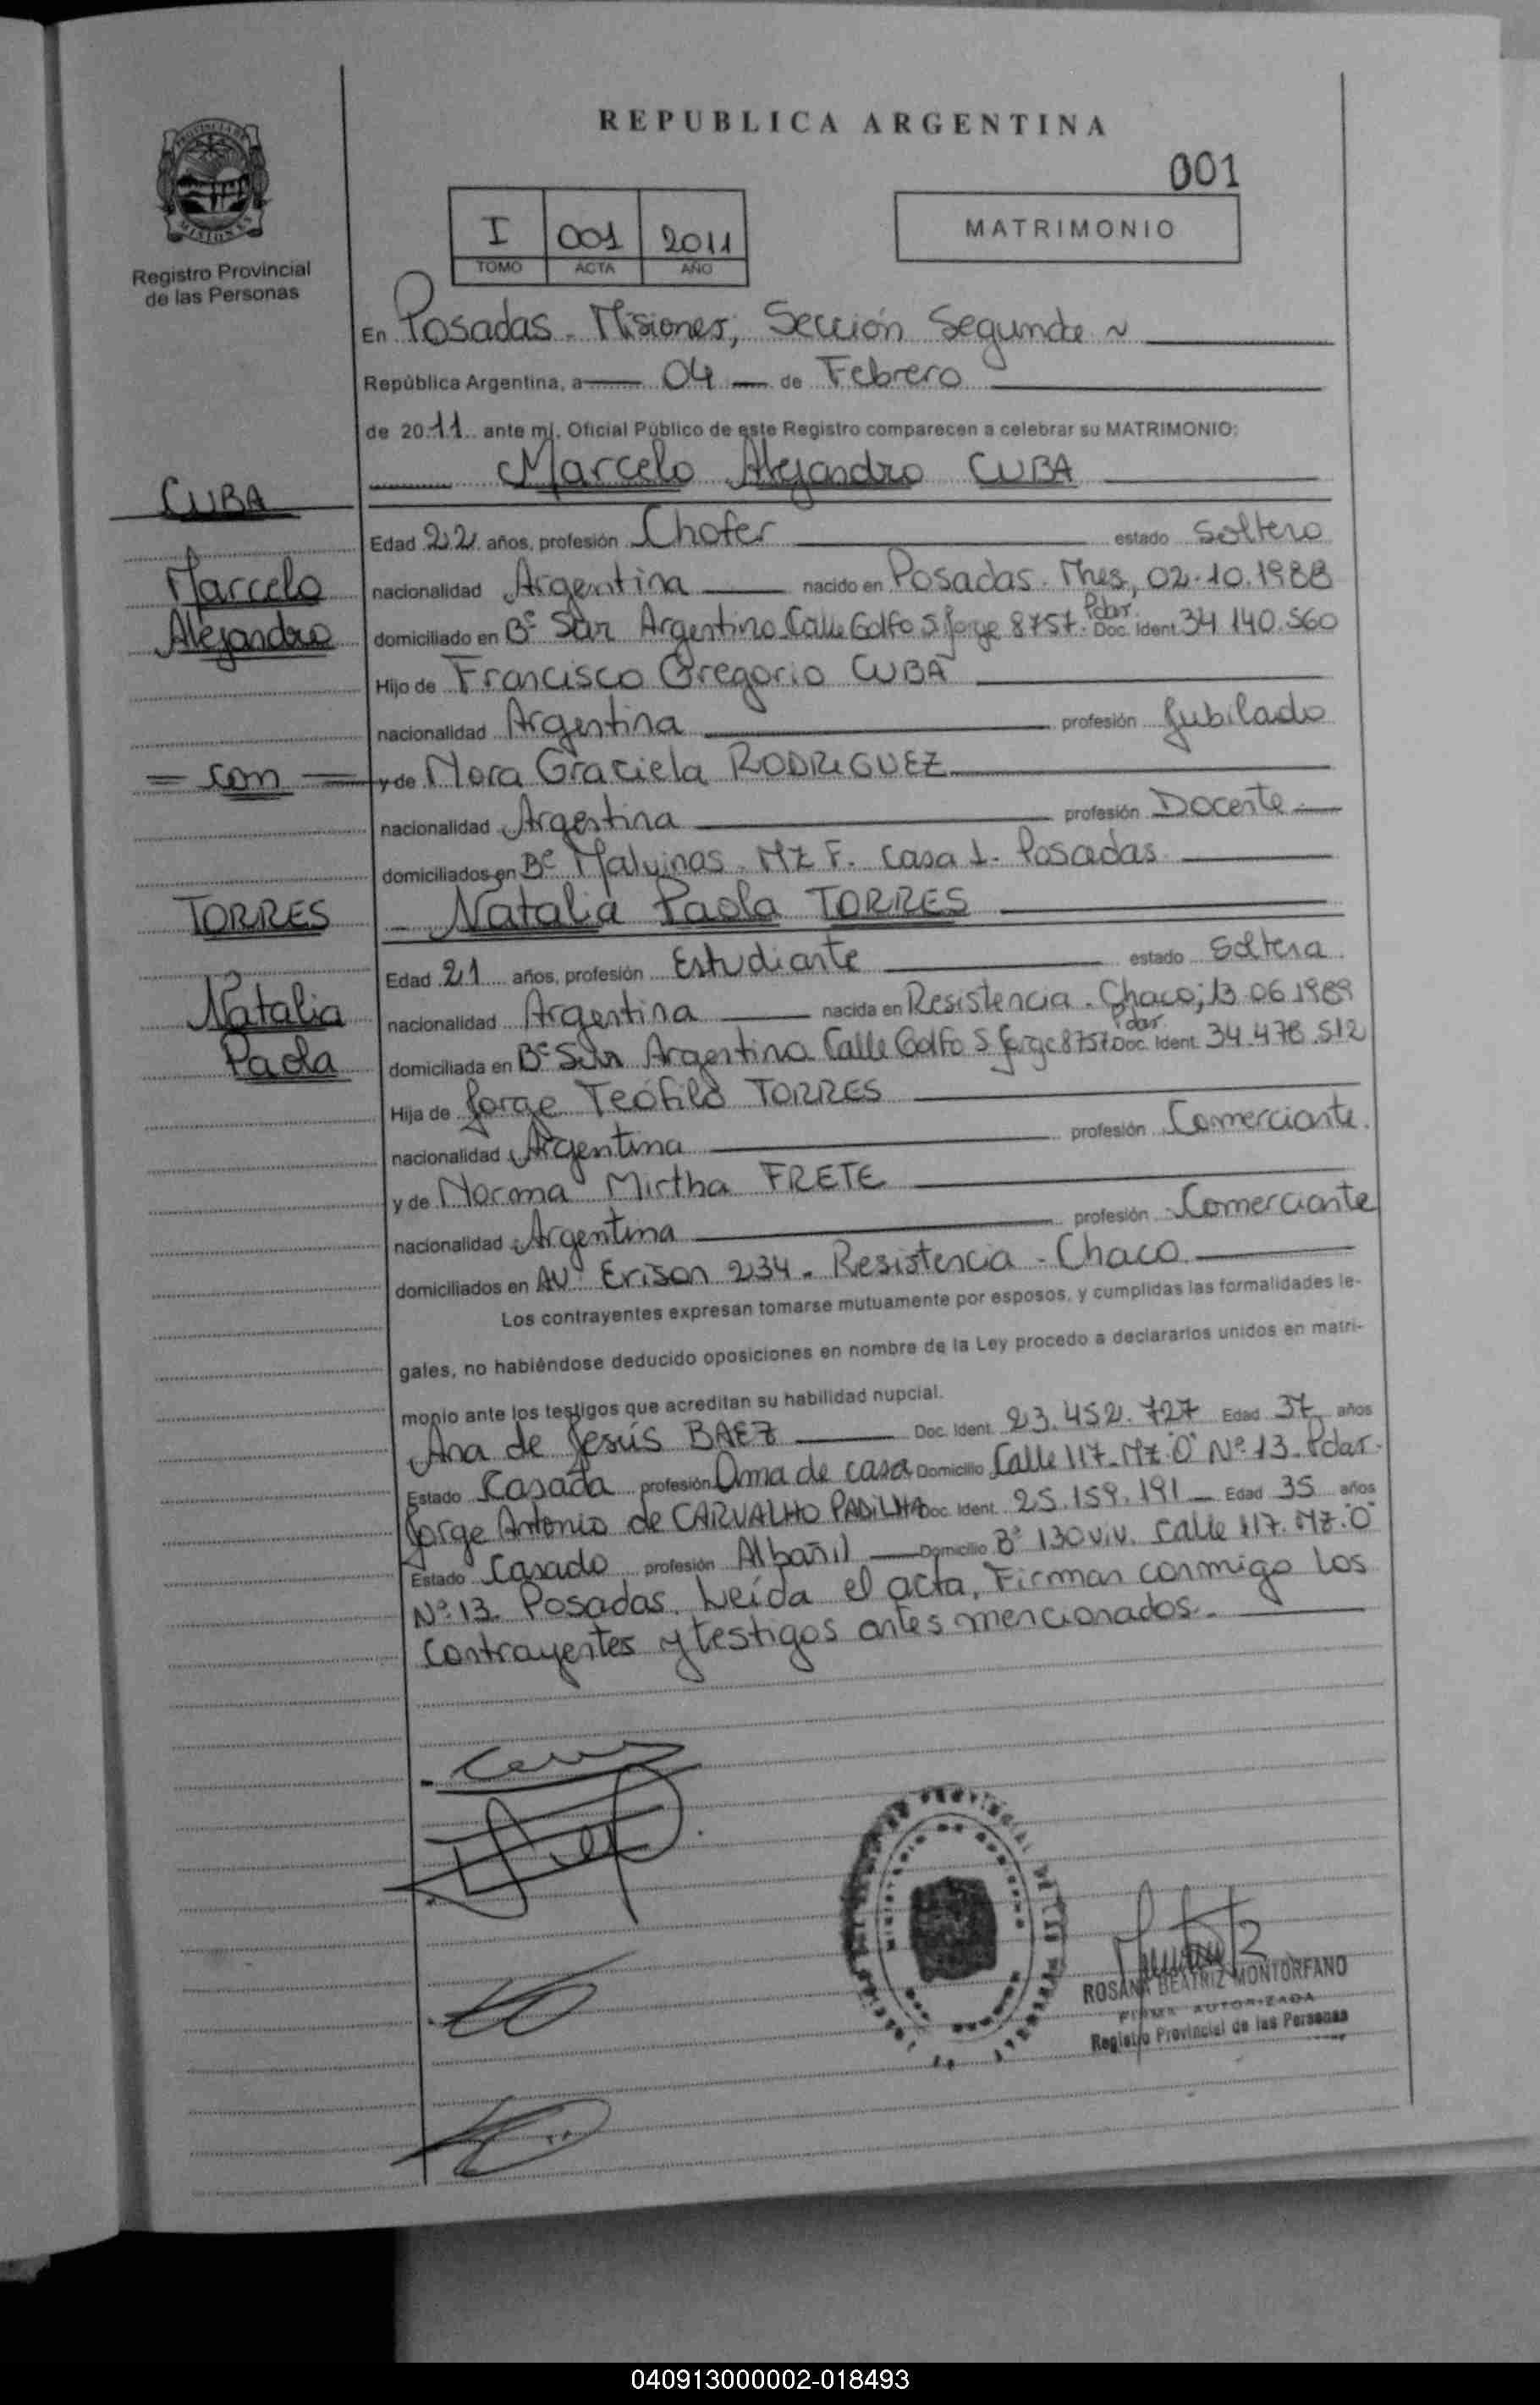 REPUBLICA ARGENTINA
001
I 001 2011
TOMO ACTA AÑO
MATRIMONIO
Registro Provincial
de las Personas
En Posadas - Misiones, Sección Segunda
República Argentina, a 04 de Febrero
de 2011 ante mí, Oficial Público de este Registro comparecen a celebrar su MATRIMONIO:
Marcelo Alejandro CUBA
CUBA
Edad 22 años, profesión Chofer estado Soltero
Marcelo
nacionalidad Argentina nacido en Posadas - Mnes, 02-10-1988
Alejandro
domiciliado en Bº Argentino Calle Golfo S. Jorge 8757 - Pdas. Doc. Ident. 34.140.560
Hijo de Francisco Gregorio CUBA
nacionalidad Argentina profesión Jubilado
= con =
y de Nora Graciela RODRIGUEZ
nacionalidad Argentina profesión Docente
domiciliados en Bº Malvinas - Mz F - Casa 1 - Posadas
TORRES
Natalia Paola TORRES
Edad 21 años, profesión Estudiante estado Soltera
Natalia
nacionalidad Argentina nacida en Resistencia - Chaco, 13-06-1989
Paola
domiciliada en Bº Argentino Calle Golfo S. Jorge 8757 Pdas. Doc. Ident. 34.478.512
Hija de Jorge Teófilo TORRES
nacionalidad Argentina profesión Comerciante
y de Norma Mirtha FRETE
nacionalidad Argentina profesión Comerciante
domiciliados en Av. Erison 234 - Resistencia - Chaco
Los contrayentes expresan tomarse mutuamente por esposos, y cumplidas las formalidades le-
gales, no habiéndose deducido oposiciones en nombre de la Ley procedo a declararlos unidos en matri-
monio ante los testigos que acreditan su habilidad nupcial.
Ana de Jesús BAEZ Doc. Ident. 23.452.727 Edad 37 años
Estado Casada profesión Ama de casa Domicilio Calle 117 - Mz "O" Nº 13 - Pdas.
Jorge Antonio de CARVALHO PADILHA Doc. Ident. 25.159.191 Edad 35 años
Estado Casado profesión Albañil Domicilio Bº 130 viv. calle 117. Mz. "O"
Nº 13. Posadas. Leída el acta, Firman conmigo los
contrayentes y testigos antes mencionados.
ROSANA BEATRIZ MONTORFANO
FIRMA AUTORIZADA
Registro Provincial de las Personas
040913000002-018493